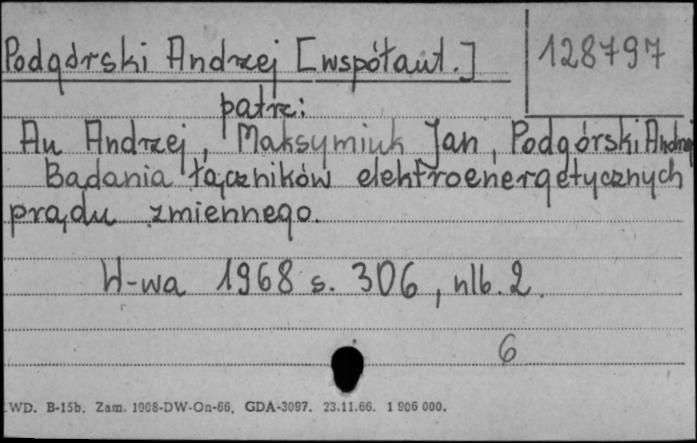 Podgórski Andrzej [współaut.]
128797
patrz:
Au Andrzej, Maksymiuk Jan, Podgórski Andrzej
Badania łączników elektroenergetycznych
prądu zmiennego.
W-wa 1968 s. 306, nlb. 2.
6
WD. B-15b. Zam. 1908-DW-On-66, GDA-3097. 23.11.66. 1 906 000.